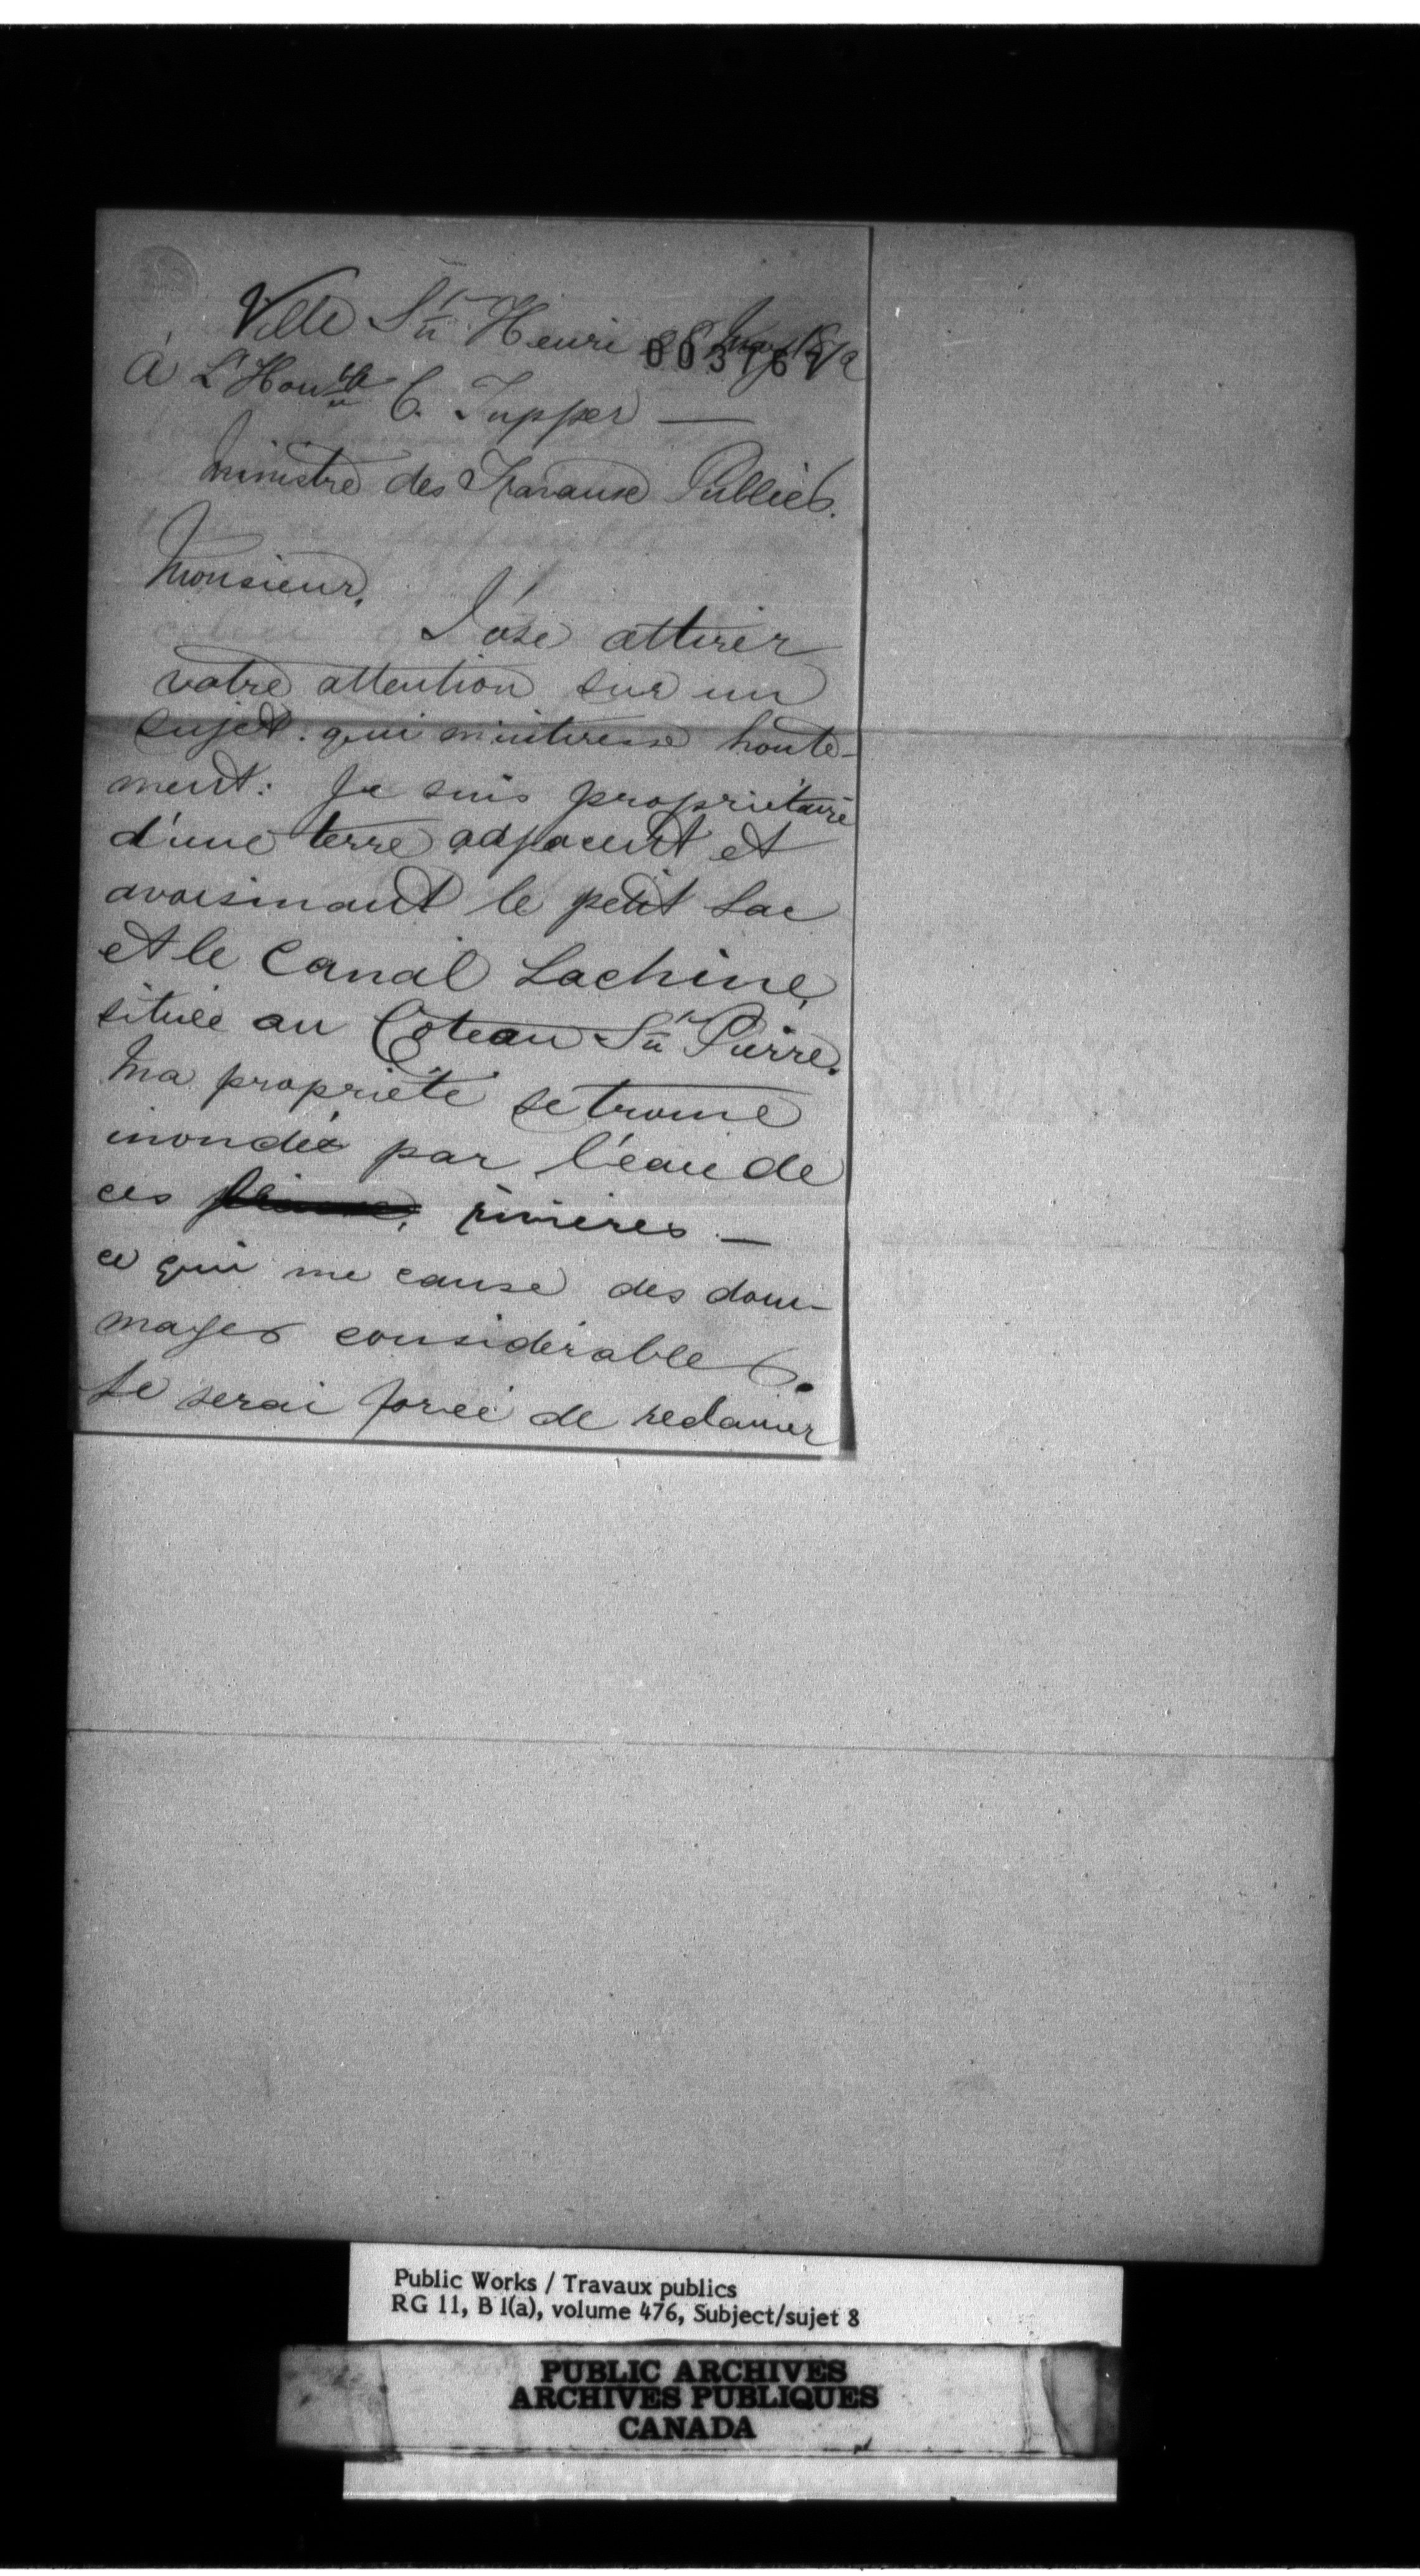 Ville St Henri
003767
À L'Honble C. Tupper —
Ministre des Travaux Publics.
Monsieur,
J'ose attirer
votre attention sur un
sujet. qui m'intéresse haute-
ment: Je suis propriétaire
d'une terre adjacent et
avoisinant le petit Lac
et le Canal Lachine,
située au Coteau St Pierre.
Ma propriété se trouve
inondée par l'eau de
ces rivières —
ce qui me cause des dom-
mages considérables.
Je serai forcé de reclamer
Public Works / Travaux publics
RG 11, B 1(a), volume 476, Subject/sujet 8
PUBLIC ARCHIVES
ARCHIVES PUBLIQUES
CANADA